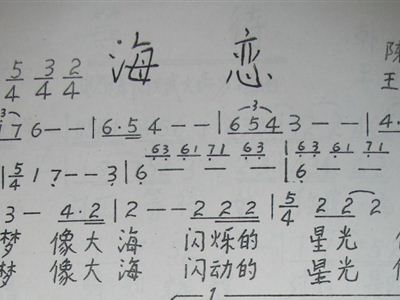 海 恋
5/4 3/4 2/4
陈
王
3
17 6 — — | 6·5 4 — — | 654 3 — — | 4·
3
63 61 71 63 63 61 71
| 5/4 1 7 — — 3 | 6 — — — — | 6 — —
3 — 4·2 | 2 — — 2 2 2 | 5/4 2 2 2
梦 像大 海 闪烁的 星光
梦 像大 海 闪动的 星光
1